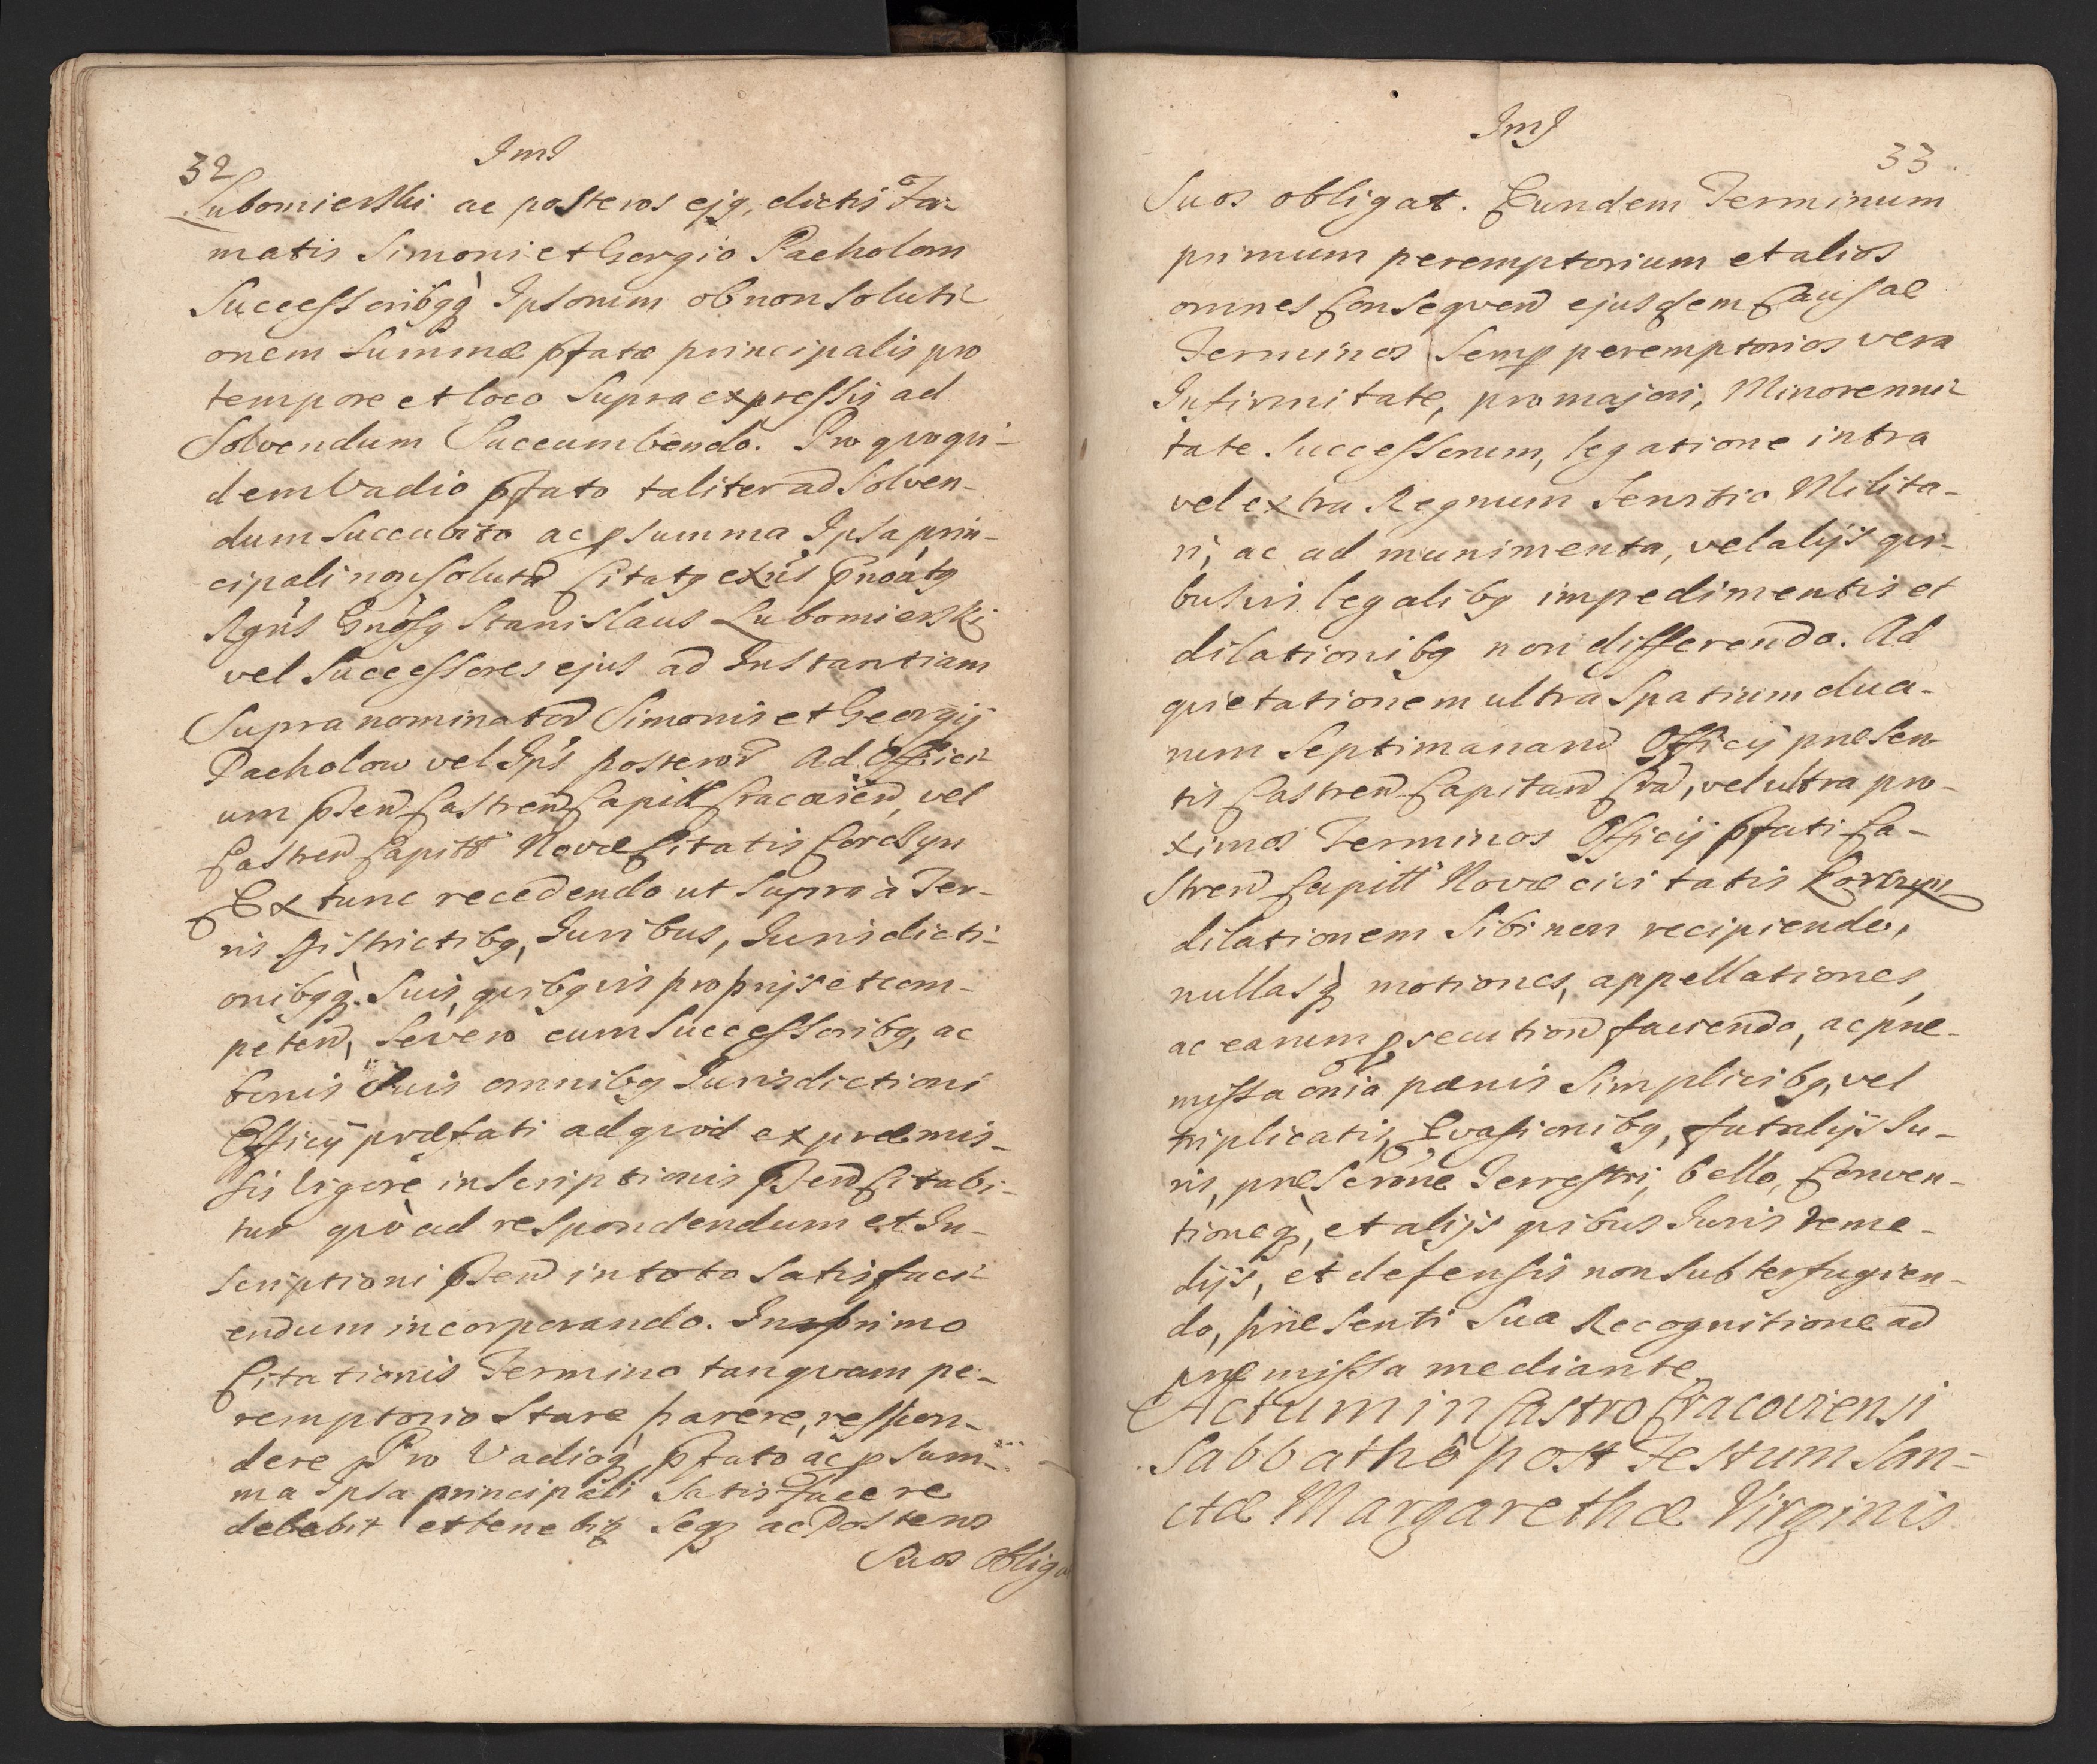 32
JmJ
Lubomierski ac posteros ejq, dictis Fa-
matis Simoni et Georgio Pacholom
Successoribqq Ipsorum ob non soluti
onem Summæ pfatæ principalis pro
tempore et loco Supra expressis ad
Solvendum Succumbendo. Pro quoqui-
dem Vadio pfato taliter ad Solven-
dum succubito ac p summa Ipsa prin-
cipali non soluta Citatq exñs
Rgñs Gnosq Stanislaus Lubomierski
vel Successores ejus ad Instantiam
Supra nominator Simonis et Georgij
Pacholow vel Ips posteror Ad Offici
um pden Castren Capitl Cracovien, vel
Castren Capitt Novæ Citatis Corczyn
Ex tunc recedendo ut Supra à Ter-
ris Districtibq, Juribus, Jurisdicti-
onibqq Suis, quibqvis proprijs et com-
peten, se vero cum Successoribq, ac
bonis Suis omnibq Jurisdictioni
Officij præfati ad quod ex præmis-
sis Vigore inscriptionis pden Citabi-
tur quò ad respondendum et In-
scriptioni pden in toto Satisfaci
endum incorporando. In primo
Citationis Termino tanqvam pe-
remptorio Stare, parere, respon-
dere Pro Vadioq pfato ac p Sum-
ma Ipsa principali Satisfacere
debebit et tenebit Seq ac Posteros
Suos obliga
JmJ
33
Suos obligat. Eundem Terminum
primum peremptorium et alios
omnes Conseqven ejusdem Causæ
Terminos Semp peremptorios vera
Infirmitate, pro majori, Minorenni
tate Successorum, legatione intra
vel extra Regnum Servitio Milita-
ri, ac ad munimenta, vel alijs qui-
busvis legalibq impedimentis et
dilationibq non differendo. Ad
quietationem ultra Spatium dua-
rum Septimanaru Officij præsen
tis Castren Capitan Cra, vel ultra pro-
ximos Terminos Officij pfati Ca-
stren Capitt Novæ civitatis Korczyn
dilationem Sibi non recipiendo,
nullasq motiones, appellationes,
ac earum psecution faciendo, ac præ-
missa oñia pænis Simplicibq, vel
triplicatis, Evasionibq, futalijs Ju-
ris, præscrõne Terrestri, bello, Conven-
tioneq, et alijs quibus Juris reme-
dijs, et defensis non Subterfugien-
do, præsenti Sua Recognitione ad
præmissa mediante.
Actum in Castro Cracoviensi
Sabbathô post Festum San-
ctæ Margarethæ Virginis